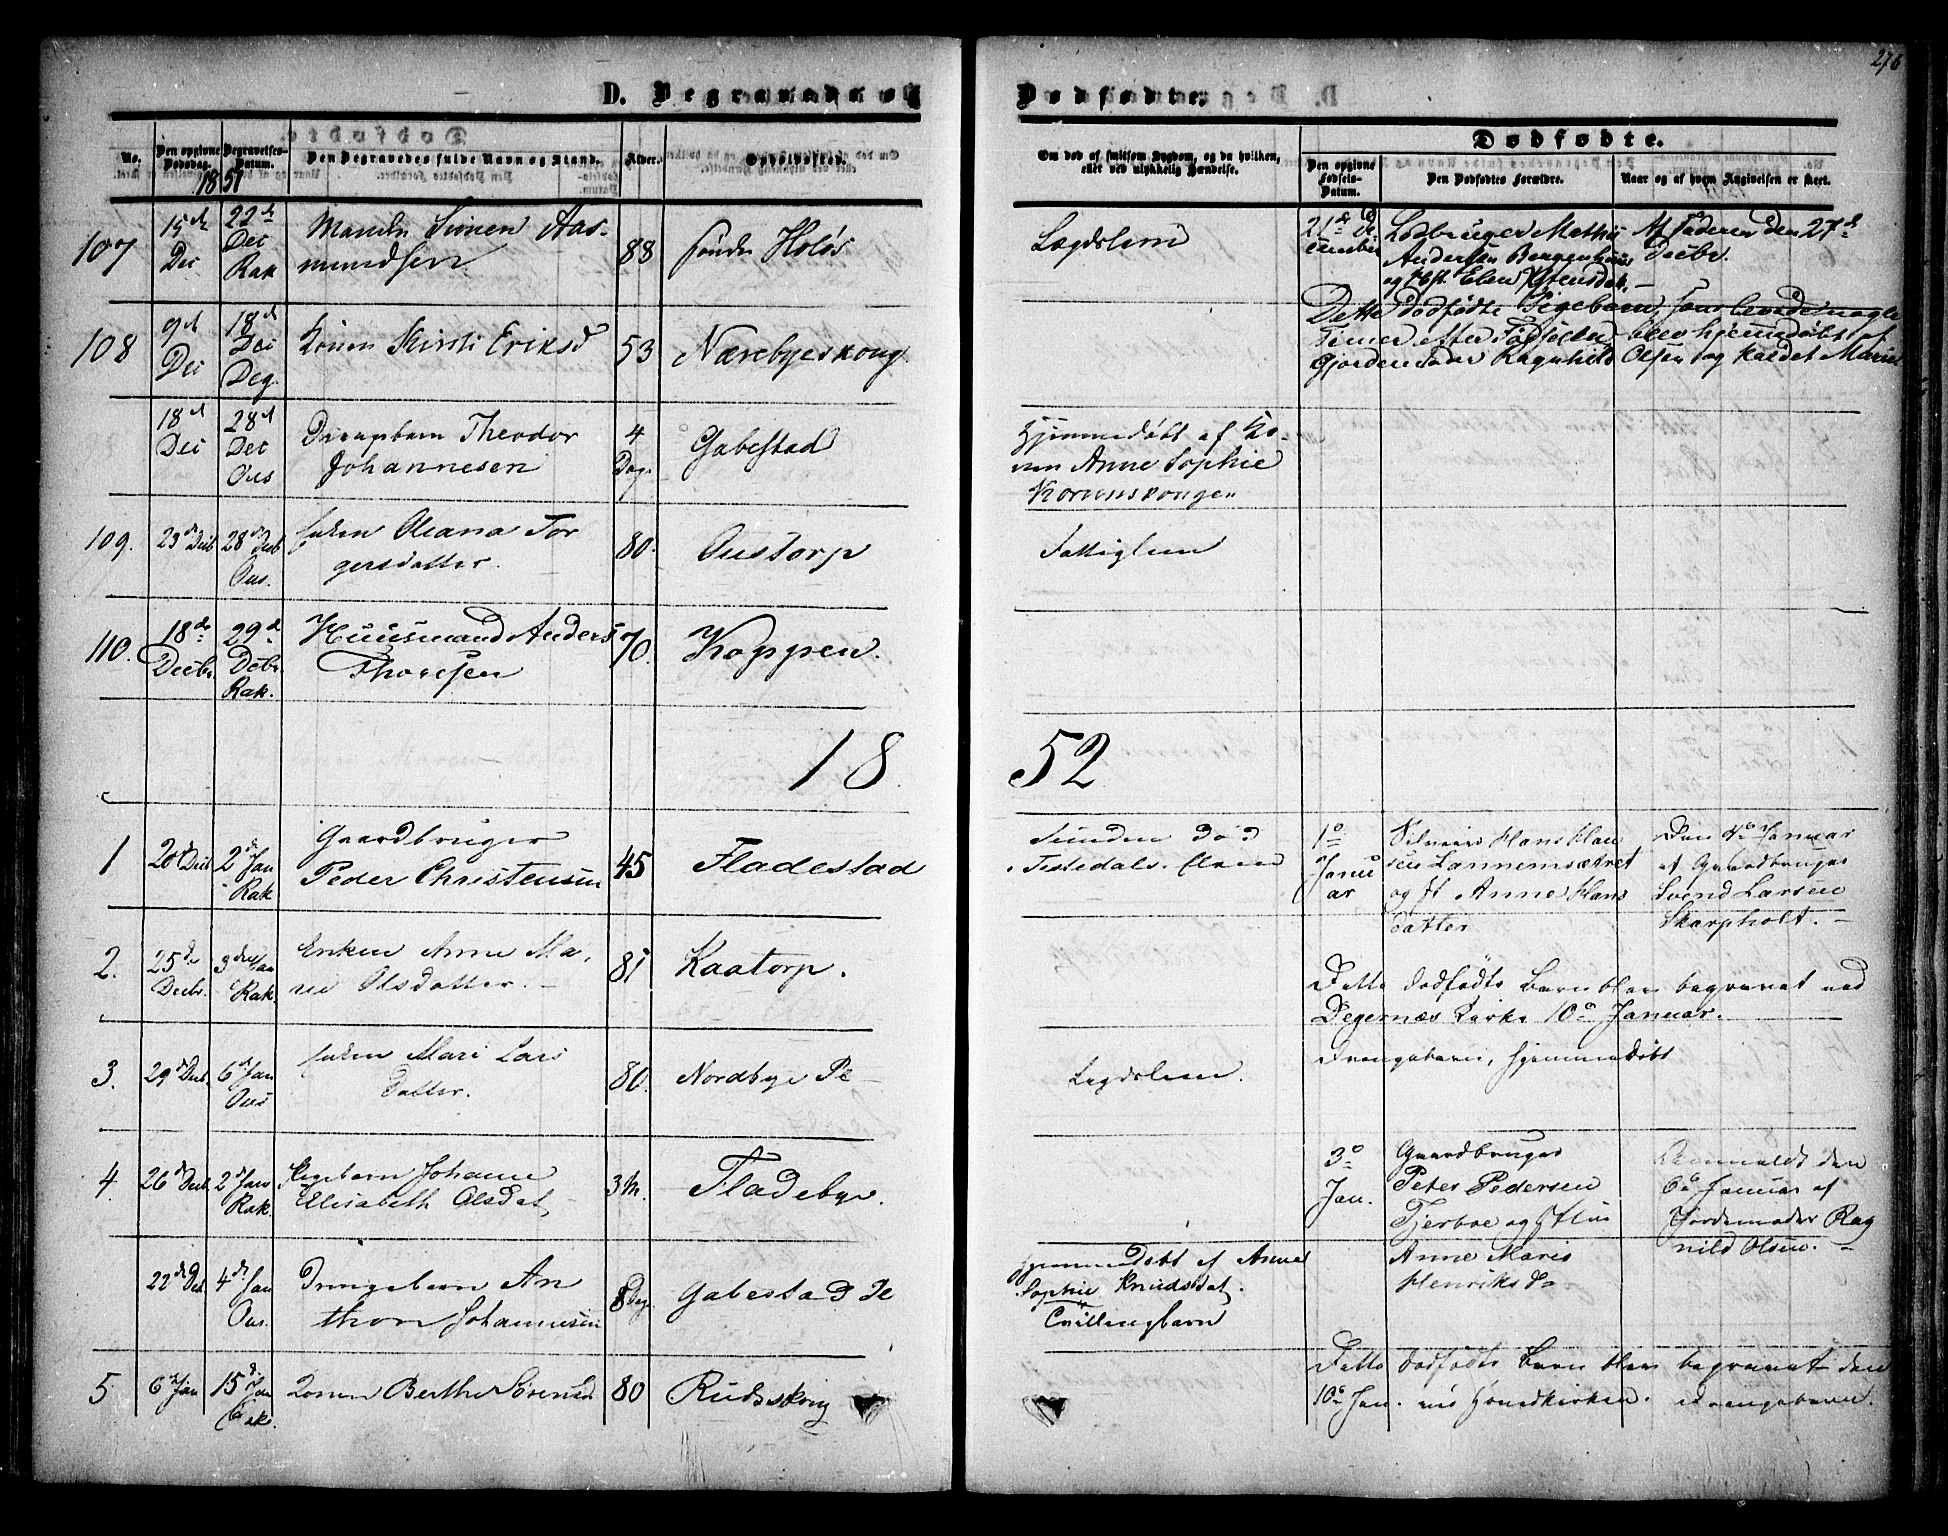 276
D. Begravede og
Dødfødte.
No.
Den opgivne Dødsdag.
Begravelses-Datum.
Den Begravedes fulde Navn og Stand.
Alder.
Opholdssted.
Om død af smitsom Sygdom, og da hvilken, eller ved ulykkelig Hændelse.
Dødfødte.
Den opgivne Fødsels-Datum.
Den Dødfødtes Forældre.
Naar og af hvem Angivelsen er skeet.
1851
107
15de Dec
22de Dec Rak
Manden Simen Aas-
mundsen
88
Søndre Holøs
Lægdslem
21de De
cember
Losbruger Mathis
Andersen Bergenhuus
og Hst. Elen
Af Faderen den 27de
Decbr.
Dette dødfødte Pigebarn, som levede nogle
Timer efter Fødselen blev hjemmedøbt af
Gjordemoder Ragnhild Olsen og kaldet Marie
108
9de Dec
18de Dec Deg.
Konen Kirsti Eriksd
53
Nærebyeskoug
18de Dec
28de Dec Ous
Drengebarn Theodor
Johannesen
4 Dag.
Gabestad
Hjemmedøbt af Ko-
nen Anne Sophie
109.
23de Decb
28de Decb Ous.
Enken Oleana Tor
gersdatter.
80.
Oustorp
Fattiglem
110.
18de Decbr.
29de Decbr. Rak.
Huusmand Anders
Thoresen
70.
Koppen.
18
52
1
20de Decb
2de Jan Rak
Gaardbruger
Peder Christensen
45
Fladestad
Funden død
Tistedals Elven
1e
Janu
ar
Hans Han
sen
og H. Anne Hans
datter
Den 4e Januar
af Gaardbruger
Svend Larsen
Skarpholt.
2.
25de Decbr.
3die Jan Rak.
Enken Anne Ma,
rie Olsdatter.
81
Kaatorp.
Dette dødfødte Barn blev begravet ved
Degernæs Kirke 10e Januar.
Drengebarn, hjemmedøbt
3.
29de Decb.
6de Jan Ous
Enken Mari Lars
datter.
80.
Nordbye Pe
Lægdslem.
4
26de Decb.
2de Jan Rak.
Pigebarn Johanne
Elisabeth Olsdat,
3 M.
Fladebye.
3e
Jan.
Gaardbruger
Peter Pedersen
Tjerboe og Hu
Anne Marie
Henriksd.
Anmeldt den
6e Januar af
Jordemoder Rag
nild Olsen.
22de Decb.
4de Jan Ous.
Drengebarn An
thon Johannesen
8 Dag.
Gabestad Pe
Hjemmedøbt af Anne
Sophie Knudsdat.
Tvillingbarn
5
6te Jan
15de Jan Rak.
Konen Berthe Sørensd
80
Rudsskoug
Dette dødfødte Barn blev begravet den
10e Jan. ved Hovedkirken. Drengebarn.